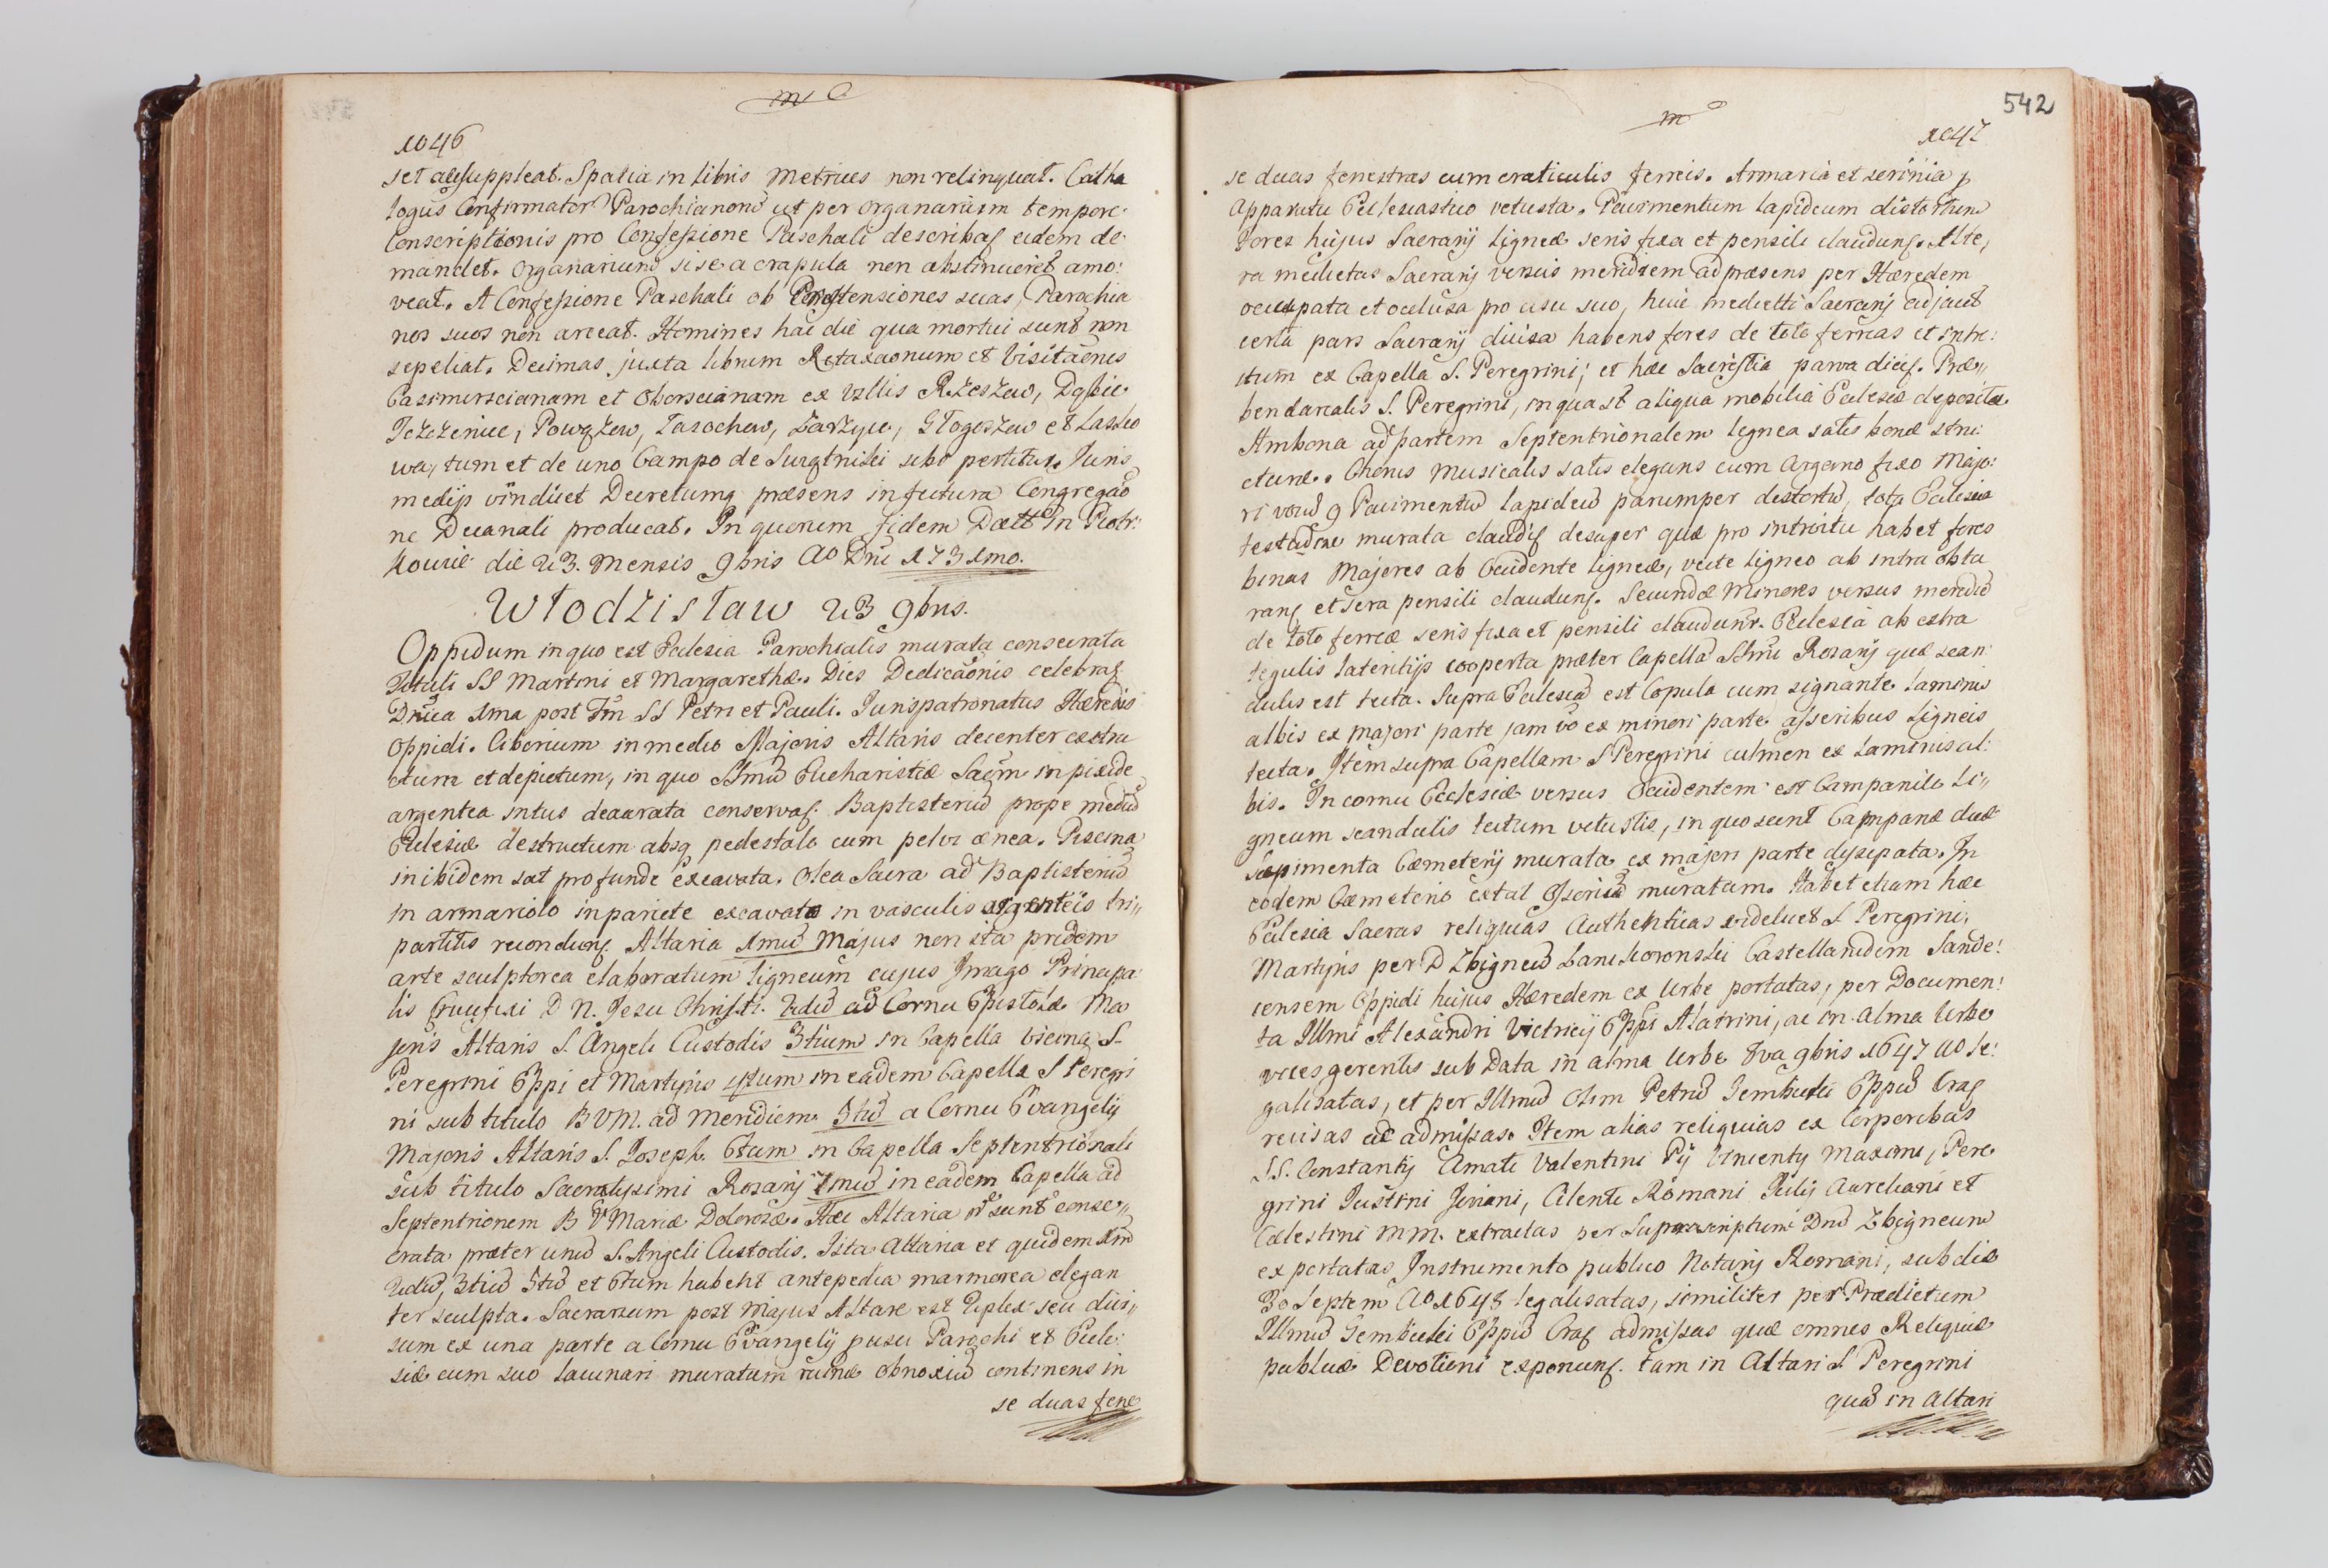 m a
1046
set ac suppleat. Spatia in libris Metrices non relinquat. Catha
logus Confirmator Parochianorū ut per organarium tempore
Conscriptionis pro Confessione Paschali describat eidem de
mandet. Organarium si se a crapula non abstinueret amo:
veat. A Confessione Paschali ob Praetensiones suas, Parochia
nos suos non arceat. Homines hac die qua mortui sunt non
sepeliat. Decimas juxta librum Retaxaonum et Visitãonis
Casimirscianam et Oborscianam ex Vıllis Rzeszew,
Powązew, Tarochew, Zarzyw, Głogoszew et Lasko
wa, tum et de uno Campo de Juris
medijs vindicet Decretumq praesens in futura Congregão
ne Decanali producat. In quorum fidem Datt In Piotr:
kovie die 23. Mensis 9bris Ao Dni 1731mo.
Włodzisław 23 9bris.
Oppidum in quo est Ecclesia Parochialis murata consecrata
Tituli SS Martini et Margarethæ. Dies Dedicãonis celebrat
Dnica 1ma post Fm SS Petri et Pauli. Jurispatronatus Hæredis
Oppidi. Ciborium in medio Majoris Altaris decenter exstru
ctum et depictum, in quo SSmū Eucharistiæ Sacm in pixide
argentea intus deaurata conservat. Baptisteriū prope mediū
Ecclesiæ destructum absq pedestalo cum pelvi ænea. Piscina
inibidem sat profunde excavata. Olea Sacra ad Baptisteriū
in armariolo in pariete excavato in vasculis argenteis tri„
partitis recondunt. Altaria 1mū Majus non ita pridem
arte sculptorea elaboratum ligneum cujus Imago Principa
lis Crucifixi D N. Jesu Christi. 2dū ad Cornu Epistolæ Ma
joris Altaris S. Angeli Custodis 3tium in Capella vicina S.
Peregrini Eppi et Martyris 4tum in eadem Capella S Peregri
ni sub titulo B V M. ad Meridiem. 5tū a Cornu Evangelij
Majoris Altaris S. Joseph. 6tum in Capella Septentrionali
sub titulo Sacratissimi Rosarij 7mū in eadem Capella ad
Septentrionem B V Mariæ Dolorosæ. Hæc Altaria sunt conse„
crata præter unū S. Angeli Custodis. Ista Altaria et quidem 1mū
2dū, 3tiū 5tū et 6tum habent antepedia marmorea elegan
ter sculpta. Sacrarium post Majus Altare est 2plex seu divi„
sum ex una parte a Cornu Evangelij p usu Parochi et Eccle:
siæ cum suo lacunari muratum ruinæ obnoxiū continens in
se duas fene
542
m
1047
se duas fenestras cum craticulis ferreis. Armaria et scrinia p
Apparatu Ecclesiastico vetusta. Pavimentum lapideum distortum
Fores hujus Sacrarij ligneæ seris fixa et pensili claudunt. Alte,
ra medietas Sacrarij versus meridiem ad præsens per Hæredem
occupata et occlusa pro usu suo, huic medietti Sacrarij adjacet
certa pars Sacrarij divisa habens fores de toto ferreas et intro:
itum ex Capella S. Peregrini; et hæc Sacristia parva dicit. Præ„
bendarealis S. Peregrini, in qua st aliqua mobilia Ecclesiæ deposita.
Ambona ad partem Septentrionalem lignea satis bonæ stru:
cturæ. Chorus Musicalis satis elegans cum Organo fixo Majo:
ri Pavimentū lapideū parumper destortū, tota Ecclesia
testudine murata claudit desuper quæ pro introitu habet fores
binas Majores ab Occidente ligneæ, vecte ligneo ab intra obta
rant et sera pensili claudunt. Secundæ Minores versus meridiē
de toto ferreæ seris fixa et pensili claudunt. Ecclesia ab extra
tegulis lateritijs cooperta præter Capellā SSmi Rosarij quæ scan
dulis est tecta. Supra Ecclesiā est Copula cum signante laminis
albis ex majori parte jam vo ex minori parte asseribus ligneis
tecta. Item supra Capellam S Peregrini culmen ex laminis al:
bis. In cornu Ecclesiæ versus Occidentem est Campanile Li„
gneum scandulis tectum vetustis, in quo sunt Campanæ duæ
Sæpimenta Cæmeterij murata ex majori parte dissipata. In
eodem Cæmeterio extat Ossoriū muratum. Habet etiam hæc
Ecclesia Sacras reliquias Authenticas videlicet S Peregrini
Martyris per D Zbigneū Lanckoronski Castellanidem Sande:
censem Oppidi hujus Hæredem ex Urbe portatas, per Documen:
ta Illmi Alexandri Victricij Eppi Alatrini, ac in Alma Urbe
vices gerentis sub Data in alma Urbe 9bris 1647 ao le:
galisatas, et per Illmū Olim Petrū Gembicki Eppū Crac
recisas ac admissas. Item alias reliquias ex Corporibus
S.S. Constantij Amati Valentini Pij Vincentij Maximi, Pere
grini Justini Joviani, Clenti Romani Julij Aureliani et
Cælestini M M. extractas per Suprascriptum Dnū Zbigneum
exportatas Instrumento publico Notarij Romani, sub die
30 Septem Ao 1648 legalisatas, similiter per Prædictum
Illmū Gembicki Eppū Crac admissas quæ omnes Reliquiæ
publicæ Devotioni exponunt. tam in Altari S Peregrini
quā in Altari